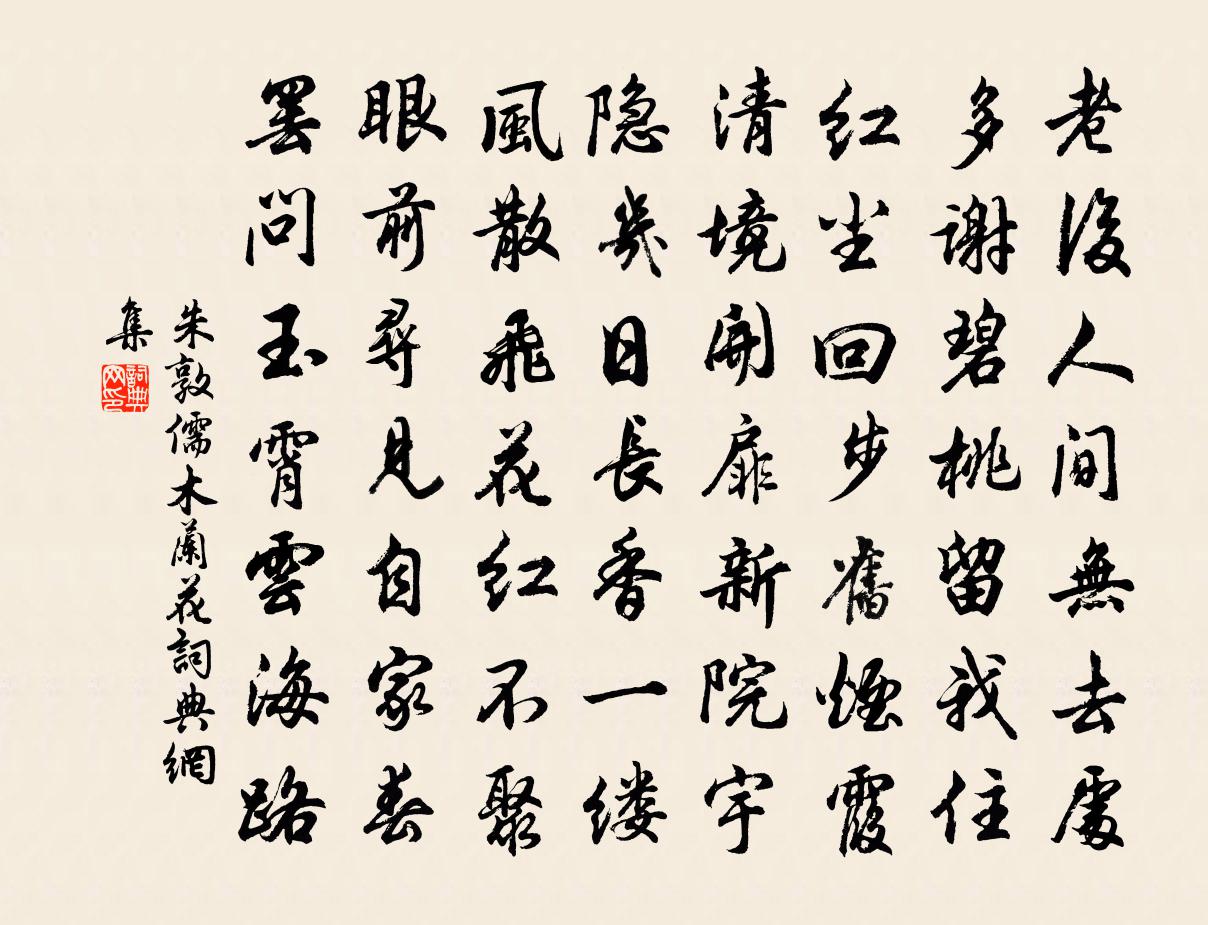 老後人間無去處
多謝碧桃留我住
红尘回步舊煙霞
清境開扉新院宇
隐几日長香一缕
風散飛花红不聚
眼前尋見自家春
罢問玉霄雲海路
朱敦儒木蘭花詞典網
集
詞典网印